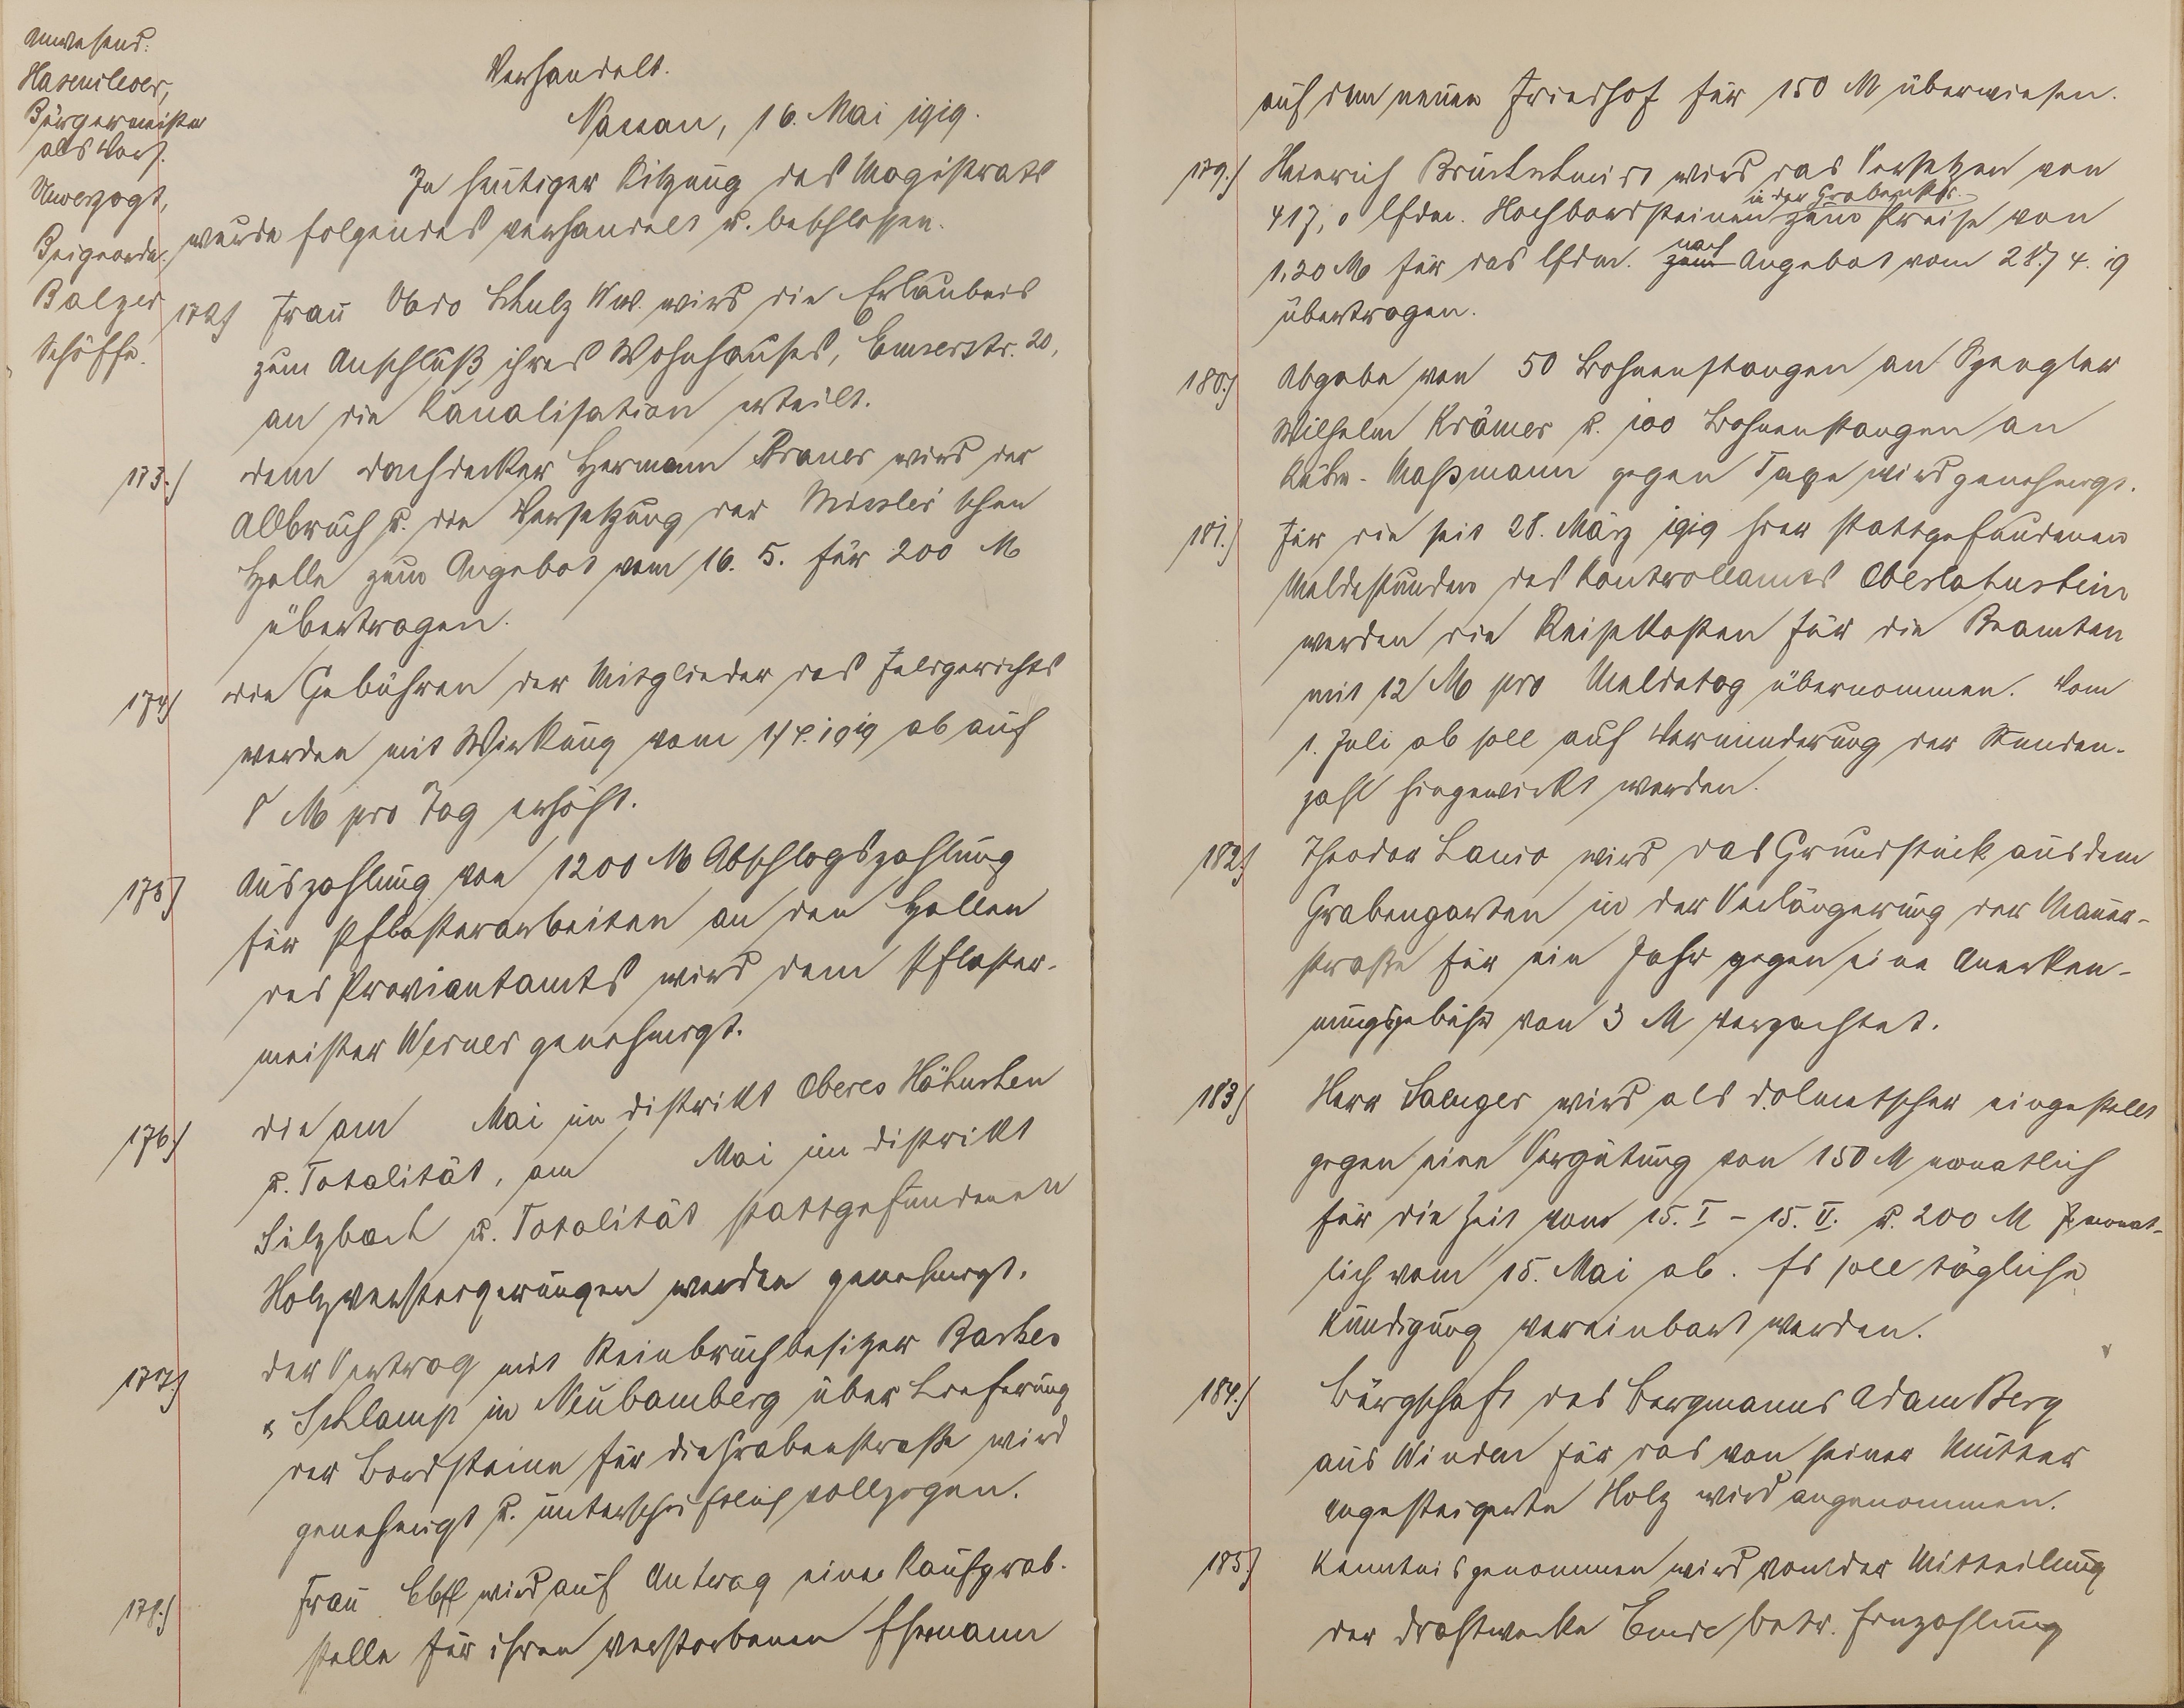 Anwesend:
Hasenclever,
Bürgermeister
als Vors.
Unverzagt,
Beigeordn.
Balzer
Schöffe.
Verhandelt.
Nassau, 16. Mai 1919.
In heutiger Sitzung des Magistrats
wurde folgendes verhandelt u. beschlossen.
172.) Frau Schulz Ww. wird die Erlaubnis
zum Anschluß ihres Wohnhauses, Emserstr. 20,
an die Kanalisation erteilt.
173.) Dem Dachdecker Hermann wird der
Abbruch u. die Versetzung der schen
Halle zum Angebot vom 16. 5. für 200 M
übertragen.
174.) Die Gebühren der Mitglieder des Feldgerichts
werden mit Wirkung vom 1./4. 1919 ab auf
8 M pro Tag erhöht.
175.) Auszahlung von 1200 M Abschlagszahlung
für Pflasterarbeiten an den Hallen
des Proviantamts wird dem Pflaster-
meister Werner genehmigt.
176.) Die am Mai im Distrikt Oberes Hähnchen
u. Totalität, am Mai im Distrikt
Silzbach u. Totalität stattgefundenen
Holzversteigerungen werden genehmigt.
177.) Der Vertrag mit Steinbruchbesitzer
u. Schlamp in Neubamberg über Lieferung
der Bordsteine für die Grabenstraße wird
genehmigt u. unterschriftlich vollzogen.
178.) Frau wird auf Antrag eine Kaufgrab-
stelle für ihren verstorbenen Ehemann
auf dem neuen Friedhof für 150 M überwiesen.
179.) Heinrich wird das Versetzen von
in der Grabenstr.
417,0 lfdm. Hochbordsteinen zum Preise von
1,20 M für das lfdm. zum nach Angebot vom 28./4. 19
übertragen.
180.) Abgabe von 50 Bohnenstangen an Spengler
Wilhelm Krämer u. 100 Bohnenstangen an
Maßmann gegen Taxe wird genehmigt.
181.) Für die seit 28. März 1919 hier stattgefundenen
Meldestunden des Kontrollamts Oberlahnstein
werden die Reisekosten für die Beamten
mit 12 M pro Meldetag übernommen. Vom
1. Juli ab soll auf Verminderung der Stunden-
zahl hingewirkt werden.
182.) Theodor Lanio wird das Grundstück aus dem
Grabengarten in der Verlängerung der Mauer-
straße für ein Jahr gegen eine Anerken-
nungsgebühr von 3 M verpachtet.
183.) Herr Saenger wird als Dolmetscher eingestellt
gegen eine Vergütung von 150 M monatlich
für die Zeit vom 15. I – 15. V. u. 200 M monat-
lich vom 15. Mai ab. Es soll tägliche
Kündigung vereinbart werden.
184.) Bürgschaft des Bergmanns Adam Berg
aus Winden für das von seiner Mutter
angesteigerte Holz wird angenommen.
185.) Kenntnis genommen wird von der Mitteilung
der Drahtwerke betr. Einzahlung